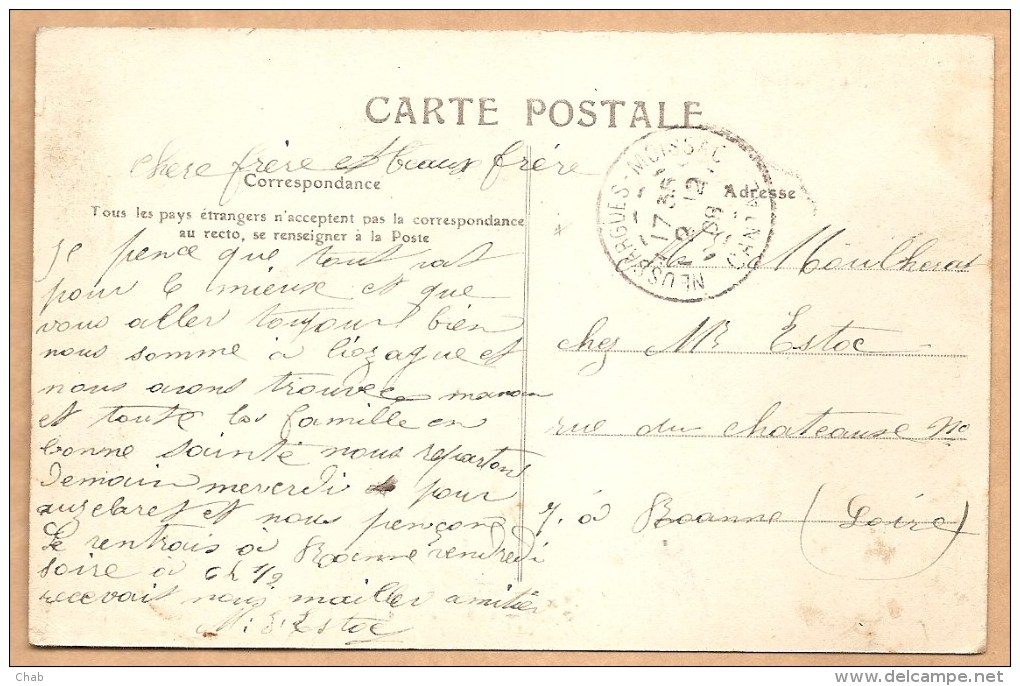 CARTE POSTALE
Chere frère et beaux frére
Correspondance
Adresse
Tous les pays étrangers n'acceptent pas la correspondance
au recto, se renseigner à la Poste
NEUSSARGUES - MOISSAC
CANTAL
17 35
Je pence que tout vat
pour le mieux et que
vous aller toujour bien
nous somme à
et
nous avons trouvée maman
et toute la famille en
bonne sainté nous repartons
Demain mercredi pour
auzelaret et nous pençons
Se rentrais a Roanne vendredi
soire à 6h 1/2
recevait nous mailler amitiés
M. Estoc
Moulherat
chez Mr Estoc
rue du chateause No
7. à Roanne (Loire)
Chab
delcampe.net